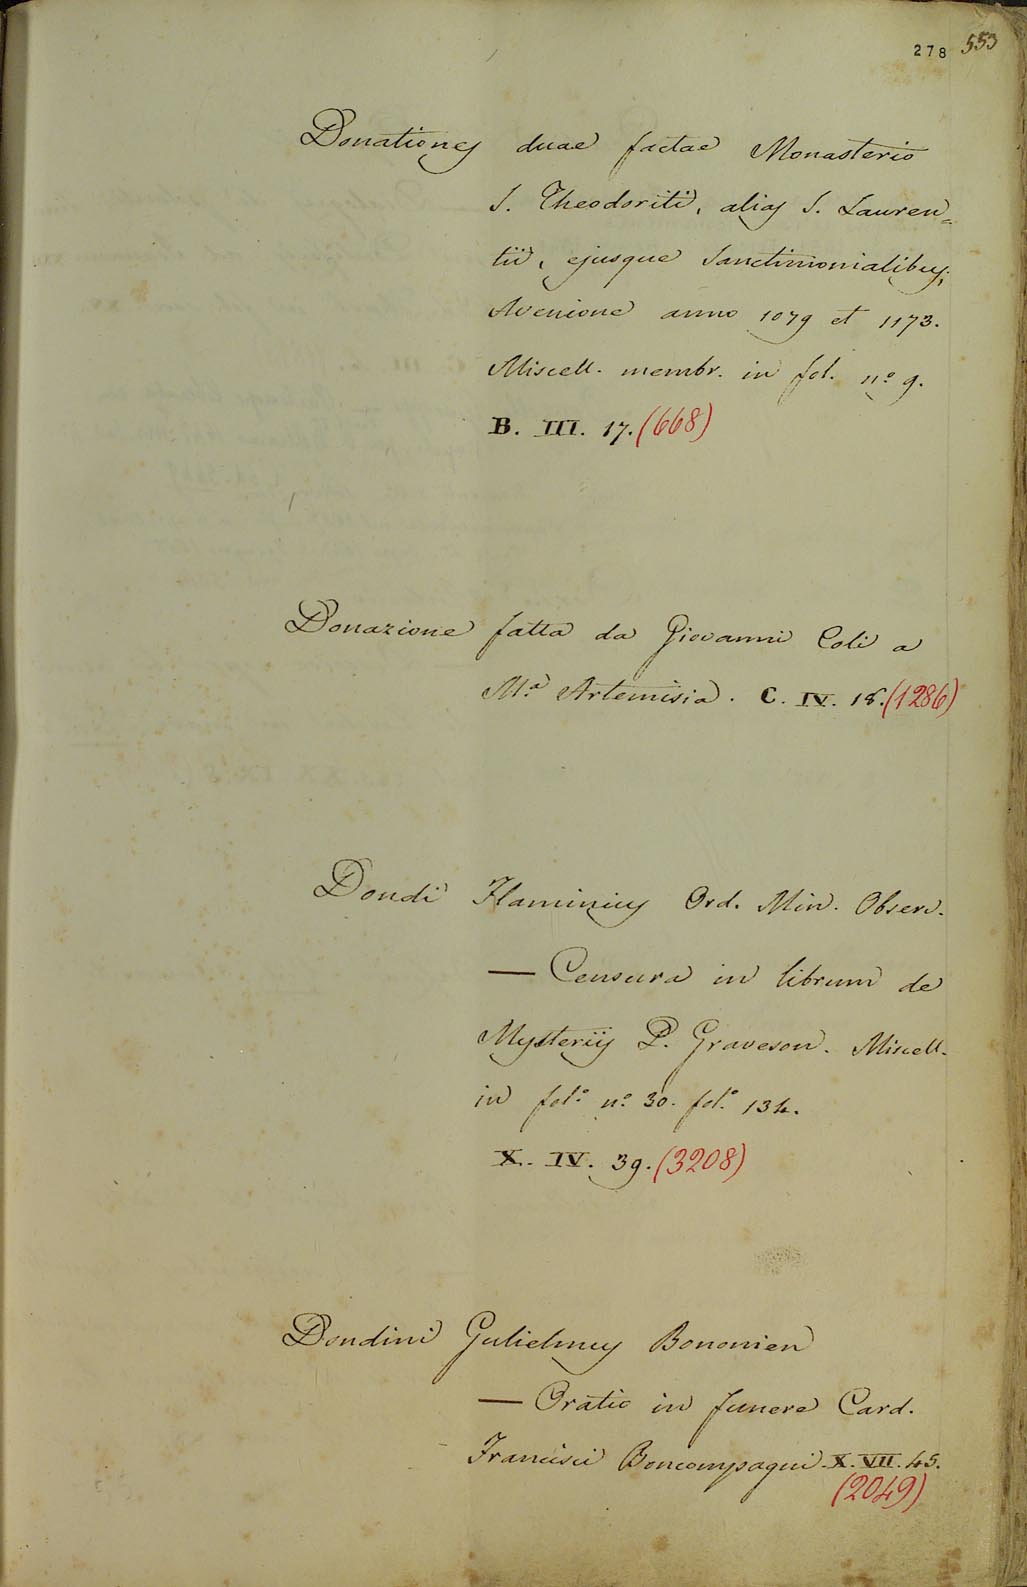 278 553
Donationes duae factae Monasterio
S. Theodoriti, alias S. Lauren=
tii, ejusque Sanctimonialibus;
Avenione anno 1079 et 1173.
Miscell. membr. in fol. nº 9.
B. III. 17. (668)
Donazione fatta da Giovanni Coli a
M.ª Artemisia. C. IV. 18. (1286)
Dondi Flaminius Ord. Min. Observ.
— Censura in librum de
Mysteriis P. Graveson. Miscell.
in fol.º nº 30. fol.º 134.
X. IV. 39. (3208)
Dondini Gulielmus Bononien
— Oratio in funere Card.
Francisci Boncompagni. X. VII. 45.
(2049)